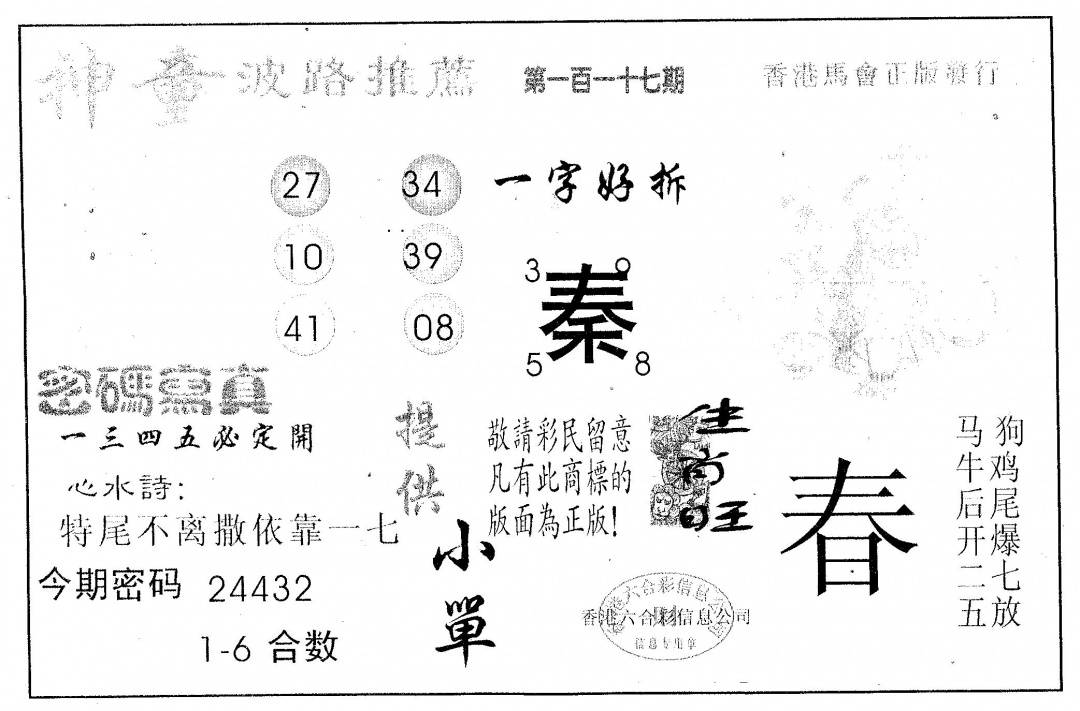 神童波路推薦
第一百一十七期
香港馬會正版發行
27 34
10 39
41 08
一字好拆
3 9
秦
5 8
密碼寫真
一三四五必定開
心水詩:
特尾不离撒依靠一七
今期密码 24432
1-6 合数
提供
小單
敬請彩民留意
凡有此商標的
版面為正版!
尚
旺
香港六合彩信息公司
信息专用章
春
狗鸡尾爆七放
马牛后开二五